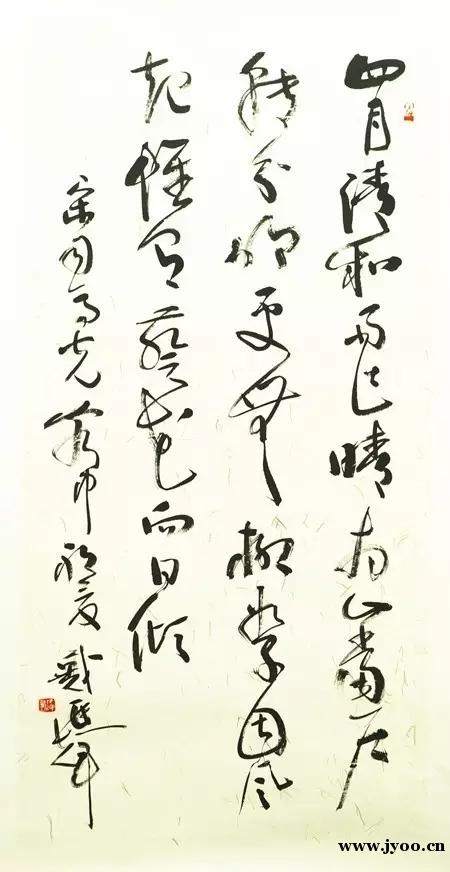 四月清和雨乍晴南山當户
轉分明更無柳絮因風
起惟有葵花向日傾
宋司馬光客中初夏 戴
www.jyoo.cn